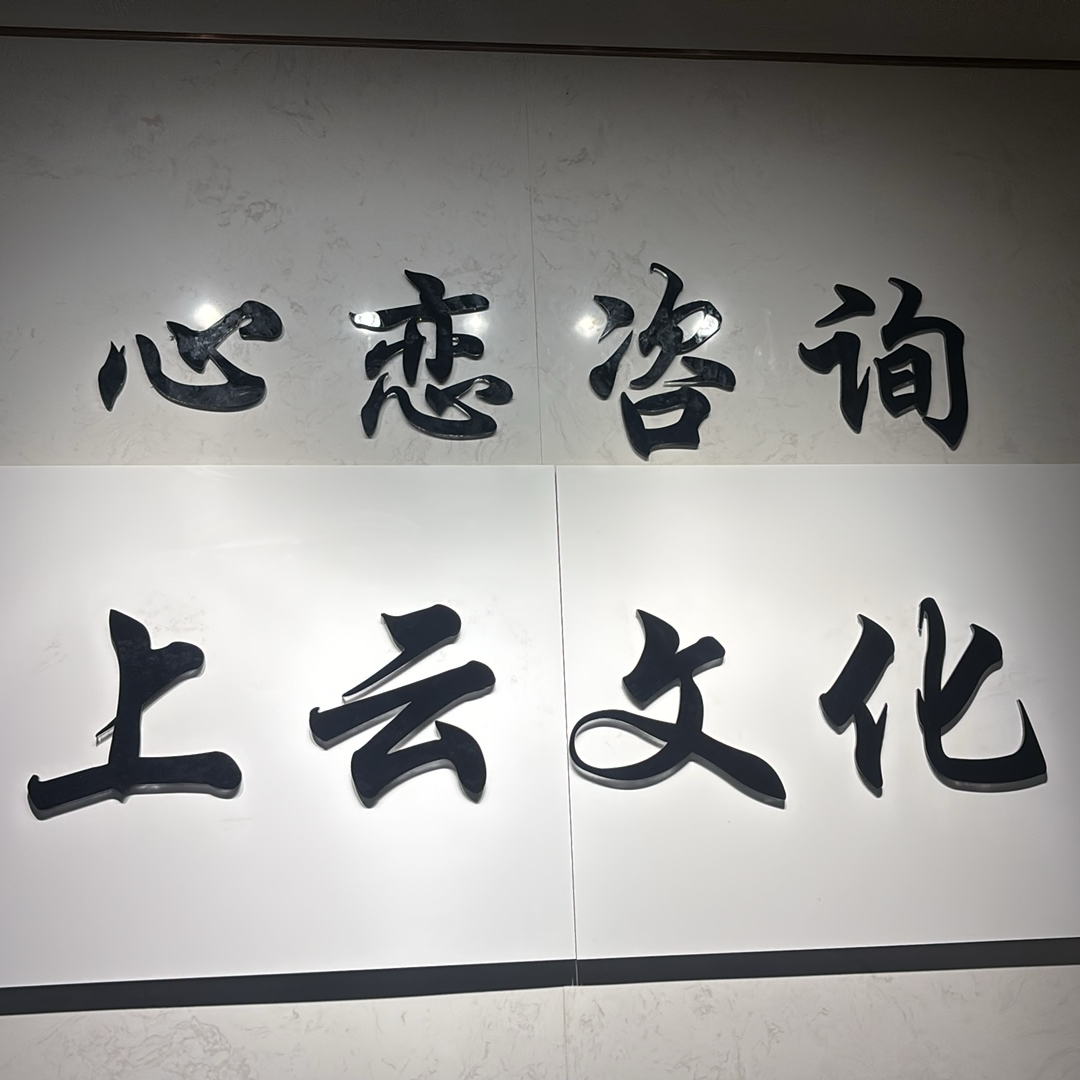 心恋咨询
上云文化